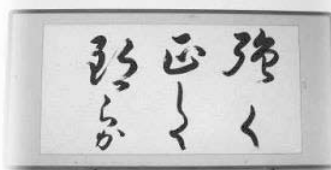 強く
正しく
朗らか